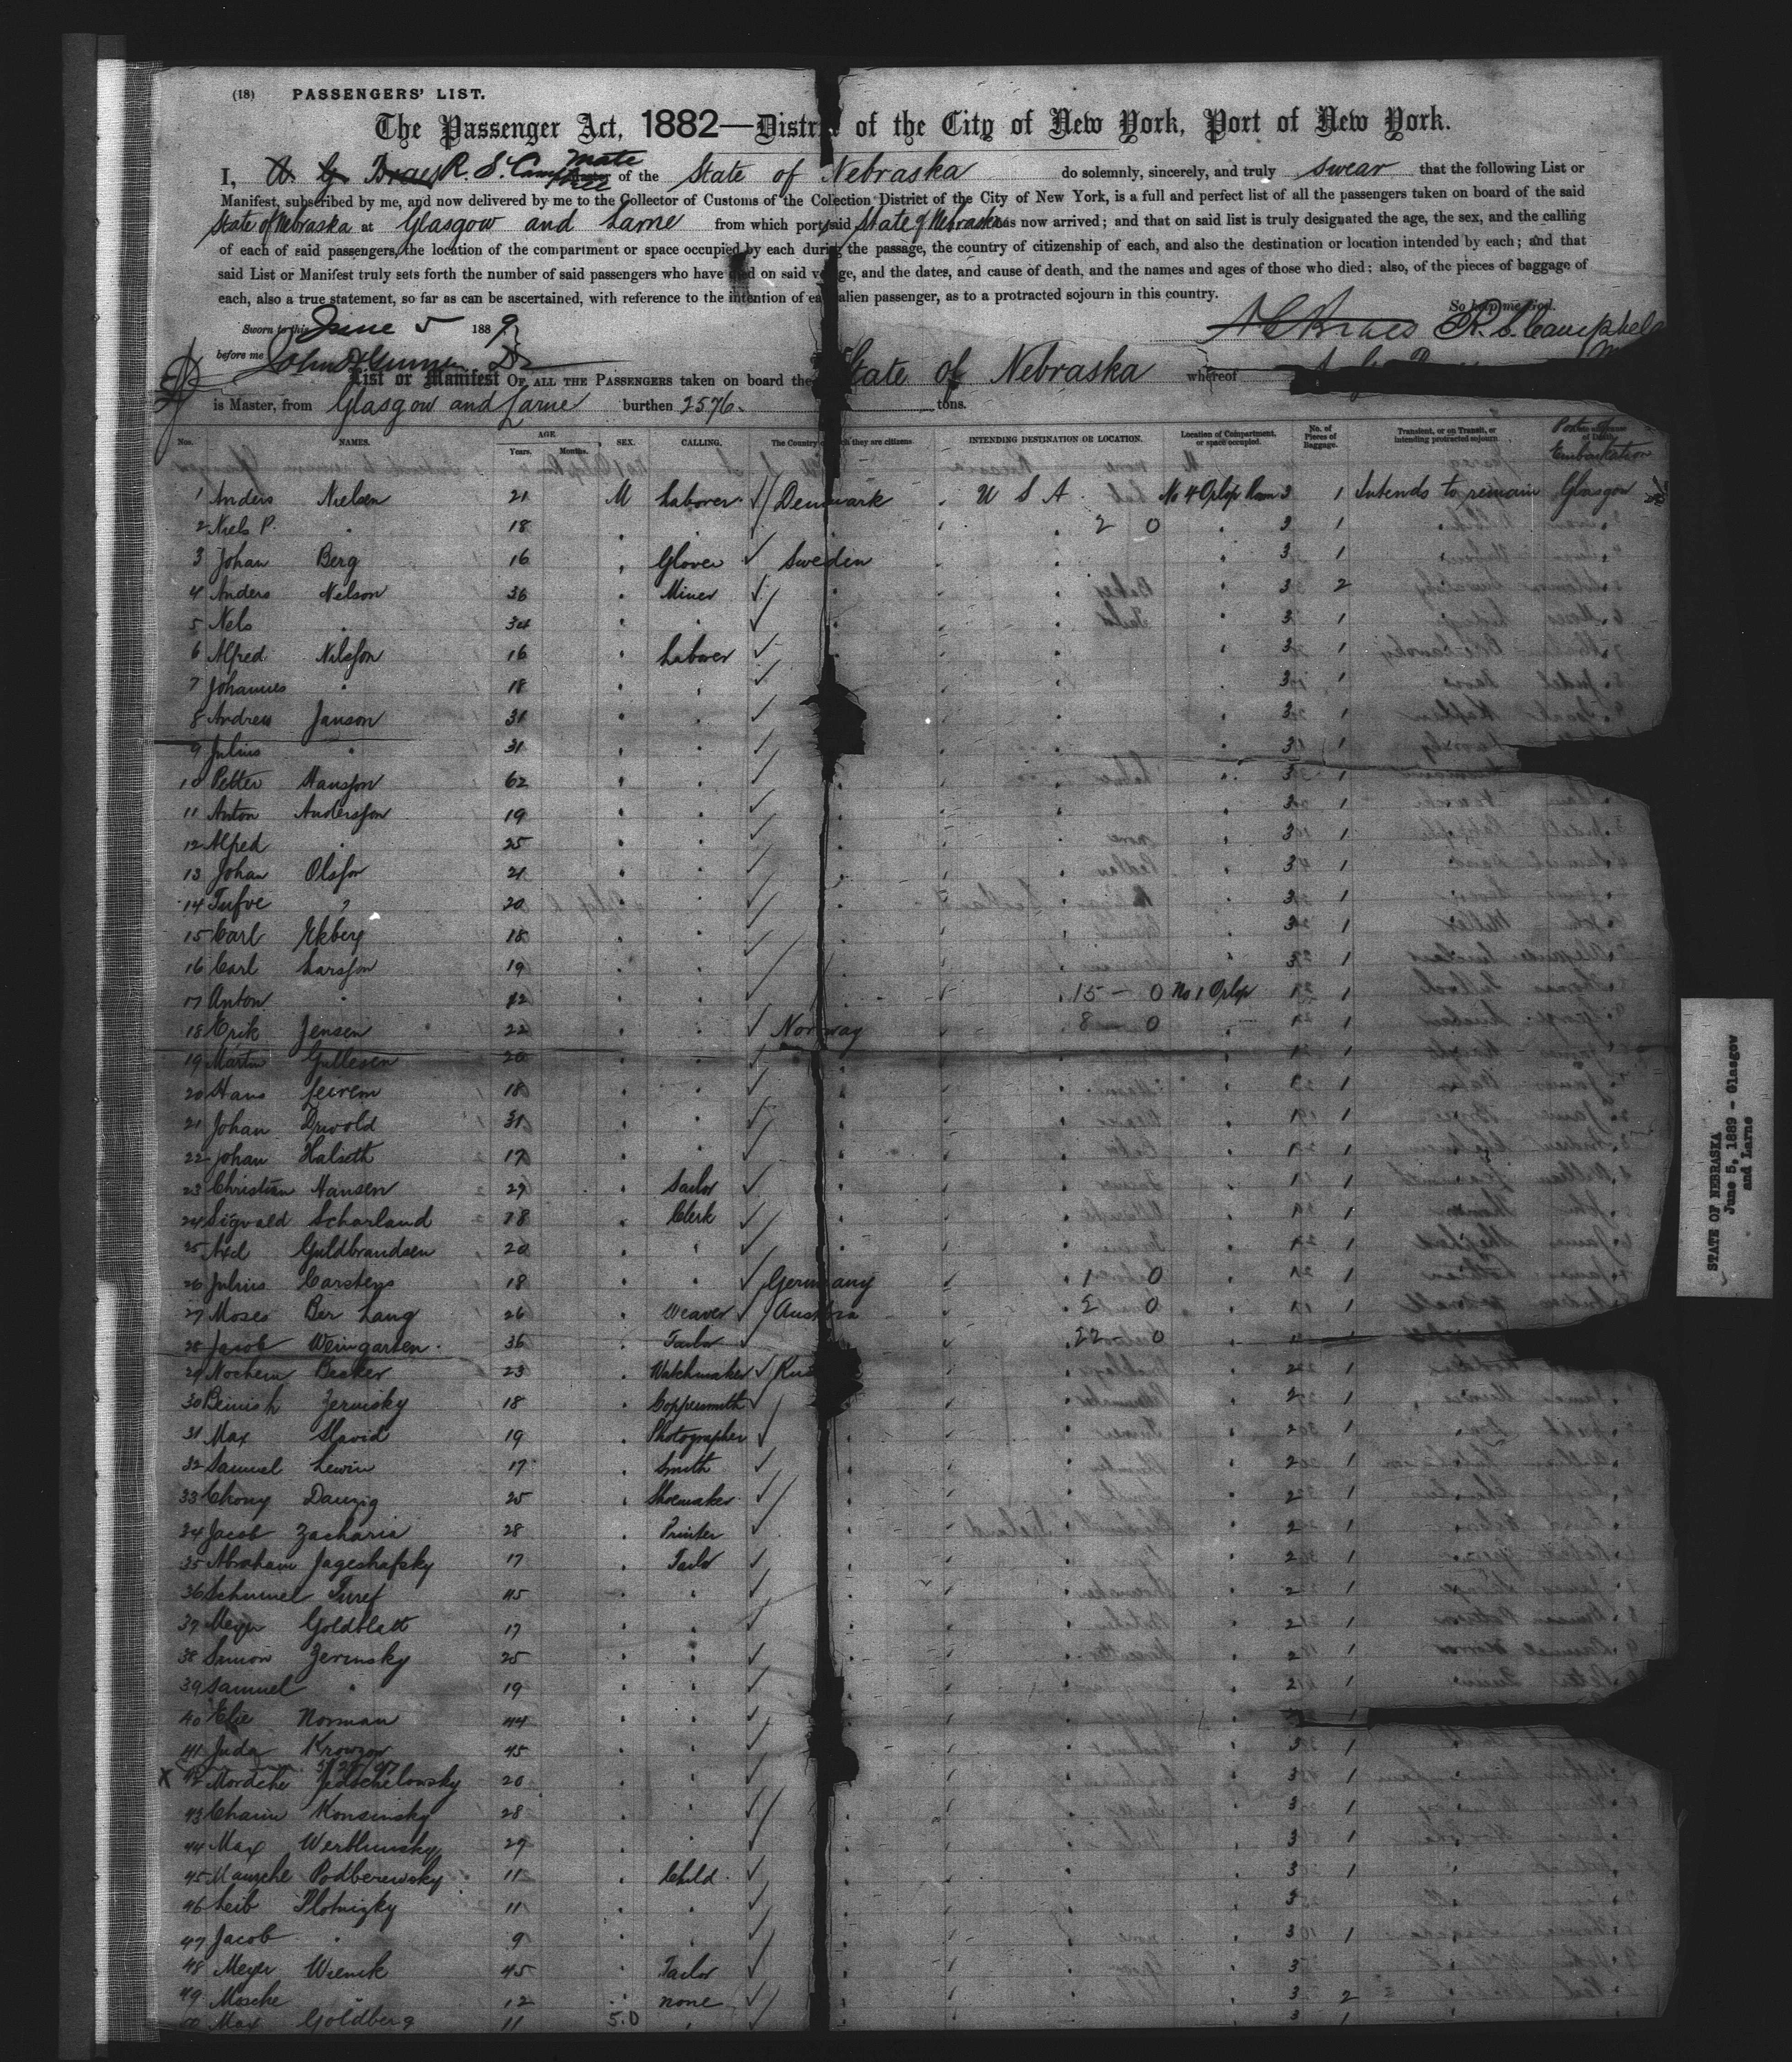 (18) PASSENGERS' LIST.
The Passenger Act, 1882—District of the City of New York, Port of New York.
I, R. S. Mate of the State of Nebraska do solemnly, sincerely, and truly swear that the following List or
Manifest, subscribed by me, and now delivered by me to the Collector of Customs of the Collection District of the City of New York, is a full and perfect list of all the passengers taken on board of the said
State of Nebraska at Glasgow and Larne from which port said State of Nebraska has now arrived; and that on said list is truly designated the age, the sex, and the calling
of each of said passengers, the location of the compartment or space occupied by each during the passage, the country of citizenship of each, and also the destination or location intended by each; and that
said List or Manifest truly sets forth the number of said passengers who have died on said voyage, and the dates, and cause of death, and the names and ages of those who died; also, of the pieces of baggage of
each, also a true statement, so far as can be ascertained, with reference to the intention of each alien passenger, as to a protracted sojourn in this country.
So help me God.
Sworn to this June 5 1889 R. S. Campbell
before me
List or Manifest OF ALL THE PASSENGERS taken on board the State of Nebraska whereof
is Master, from Glasgow and Larne burthen 2576 tons.
Nos. NAMES. AGE Years. Months. SEX. CALLING. The Country of which they are citizens INTENDING DESTINATION OR LOCATION. Location of Compartment, or space occupied. No. of Pieces of Baggage. Transient, or on Transit, or intending protracted sojourn Port of Embarkation
1 Anders Nielsen 21 M Laborer Denmark U S A No 4 Orlop Room 3 1 Intends to remain Glasgow
2 Niels P. " 18 " " 2 0 3 1
3 Johan Berg 16 " Glover Sweden 3 1
4 Anders Nelson 36 " Miner " 3 2
5 Nels " 34 " " " 3 1
6 Alfred Nilsson 16 " Laborer " 3 1
7 Johannes " 18 " " " 3 1
8 Andrew Janson 31 " " " 3 1
9 Julius " 31 " " " 3 1
10 Petter Hansson 62 " " " 3 1
11 Anton Andersson 19 " " " 3 1
12 Alfred " 25 " " " 3 1
13 Johan Olsson 21 " " " 3 1
14 Tufve " 20 " " " 3 1
15 Carl Ekberg 18 " " " 3 1
16 Carl Larsson 19 " " " 3 1
17 Anton " 12 " " " 15 — 0 No 1 Orlop 1 1
18 Erik Jensen 22 " " Norway 8 — 0 1 1
19 Martin Gullesen 20 " " " 1 1
20 Hans 18 " " " 1 1
21 Johan 31 " " " 1 1
22 Johan Halseth 17 " " " 1 1
23 Christian Hansen 29 " Sailor " 1 1
24 Sigvald Scharland 18 " Clerk " 1 1
25 Axel Guldbrandsen 20 " " " 1 1
26 Julius Carstens 18 " " Germany 1 0 1 1
27 Moses Ber Lang 26 " Weaver Austria 2 0 1 1
28 Jacob Weingarten 36 " Tailor " 22 — 0
29 Nochem Becker 23 " Watchmaker 2 1
30 Beinish Zerinsky 18 " Coppersmith " 2 1
31 Max Slavid 19 " Photographer " 2 1
32 Samuel Lewin 17 " Smith " 2 1
33 Chony Danzig 25 " Shoemaker " 2 1
34 Jacob Zacharia 28 " Printer " 2 1
35 Abraham Jageshafsky 17 " Tailor " 2 1
36 Schmuel Turef 45 " " " 2 1
37 Meyer Goldblatt 17 " " " 2 1
38 Simon Zerinsky 25 " " " 2 1
39 Samuel " 19 " " " 2 1
40 Elie Norman 44 " " "
41 Juda Krowzow 45 " " " 3 1
X 42 Mordche Jedschelowsky 20 " " " 3 1
43 Chaim Konsinsky 28 " " " 3 1
44 Max Werblunsky 29 " " " 3 1
45 Mausche Podberewsky 11 " Child " 3 1
46 Leib Plotnizky 11 " " " 3
47 Jacob " 9 " " " 3 1
48 Meyer Wienik 45 " Tailor " 3
49 Mosche 12 " none " 3 2
50 Max Goldberg 11 5.0 " " 3 1
STATE OF NEBRASKA
June 5, 1889 - Glasgow
and Larne